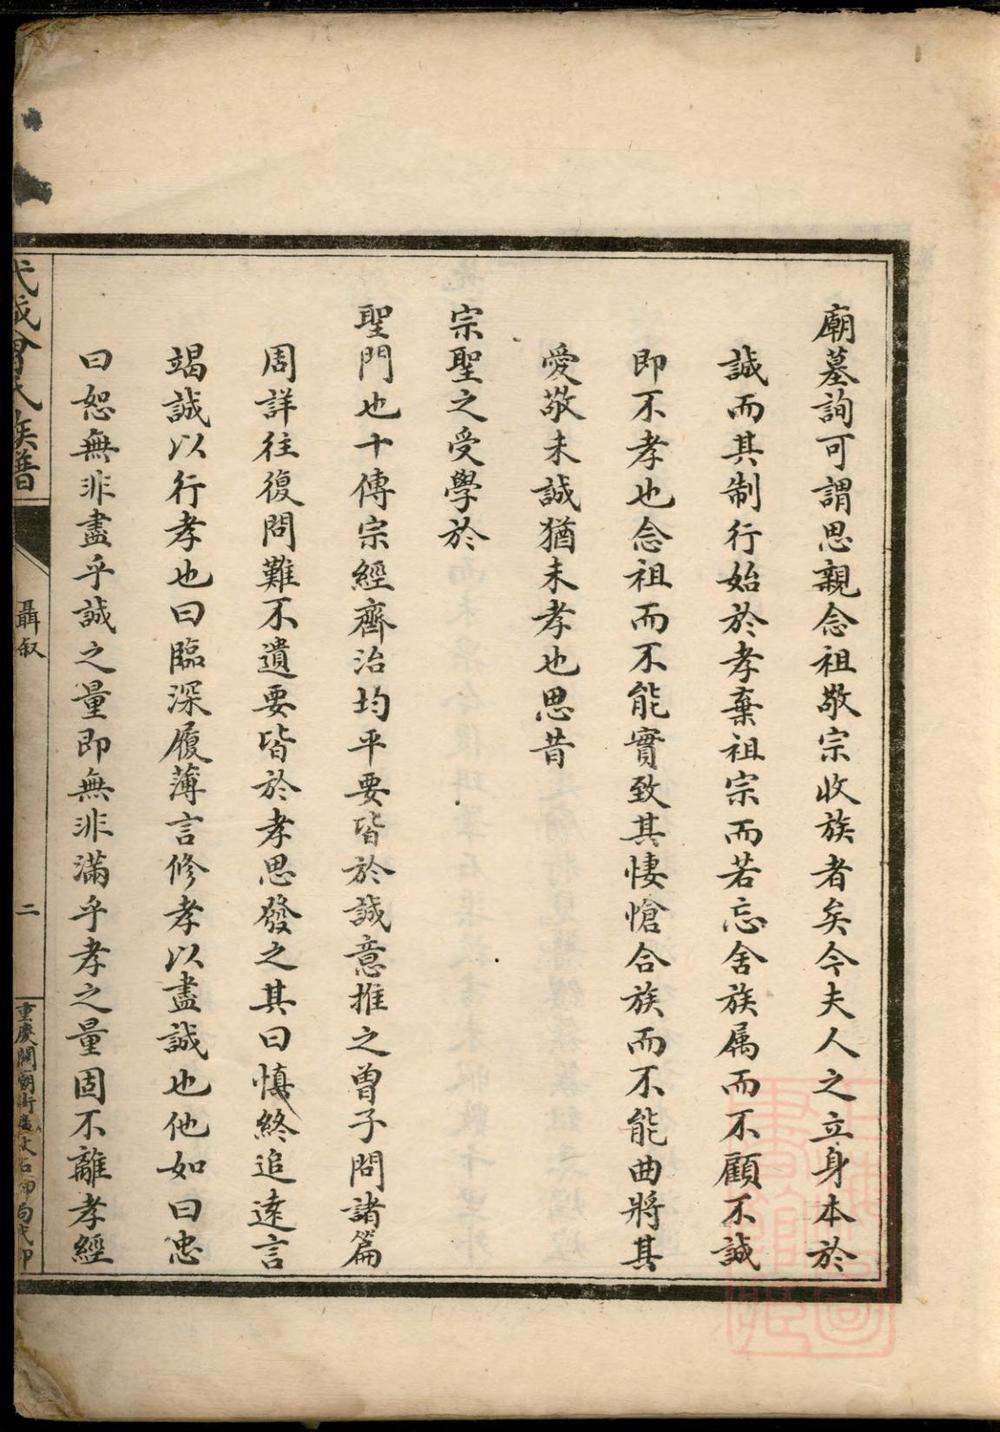 廟墓詢可謂思親念祖敬宗收族者矣今夫人之立身本於
誠而其制行始於孝棄祖宗而若忘舍族属而不顧不誠
即不孝也念祖而不能實致其悽愴合族而不能曲將其
愛敬未誠猶未孝也思昔
宗聖之受學於
聖門也十傳宗經齊治均平要皆於誠意推之曾子問諸篇
周詳往復問難不遺要皆於孝思發之其曰慎終追遠言
竭誠以行孝也曰臨深履薄言修孝以盡誠也他如曰忠
曰恕無非盡乎誠之量即無非滿乎孝之量固不離孝經
武城曾氏族譜
聶叙
二
重慶關廟街